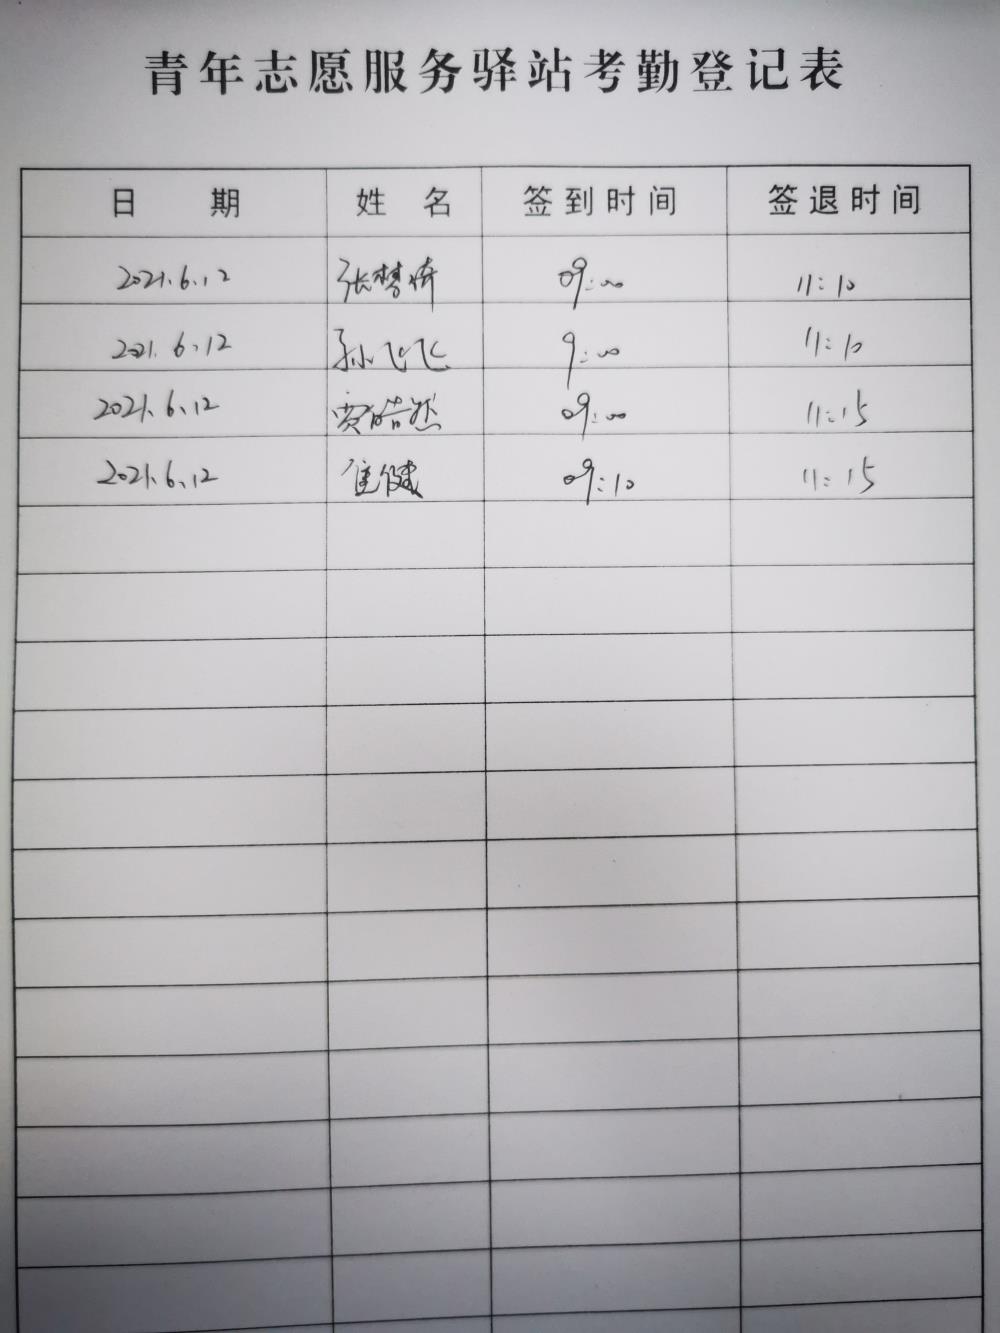 青年志愿服务驿站考勤登记表
日 期 姓 名 签到时间 签退时间
2021.6.12 张梦倚 09:00 11:10
2021.6.12 孙飞飞 9:00 11:10
2021.6.12 贾皓然 09:00 11:15
2021.6.12 09:10 11:15